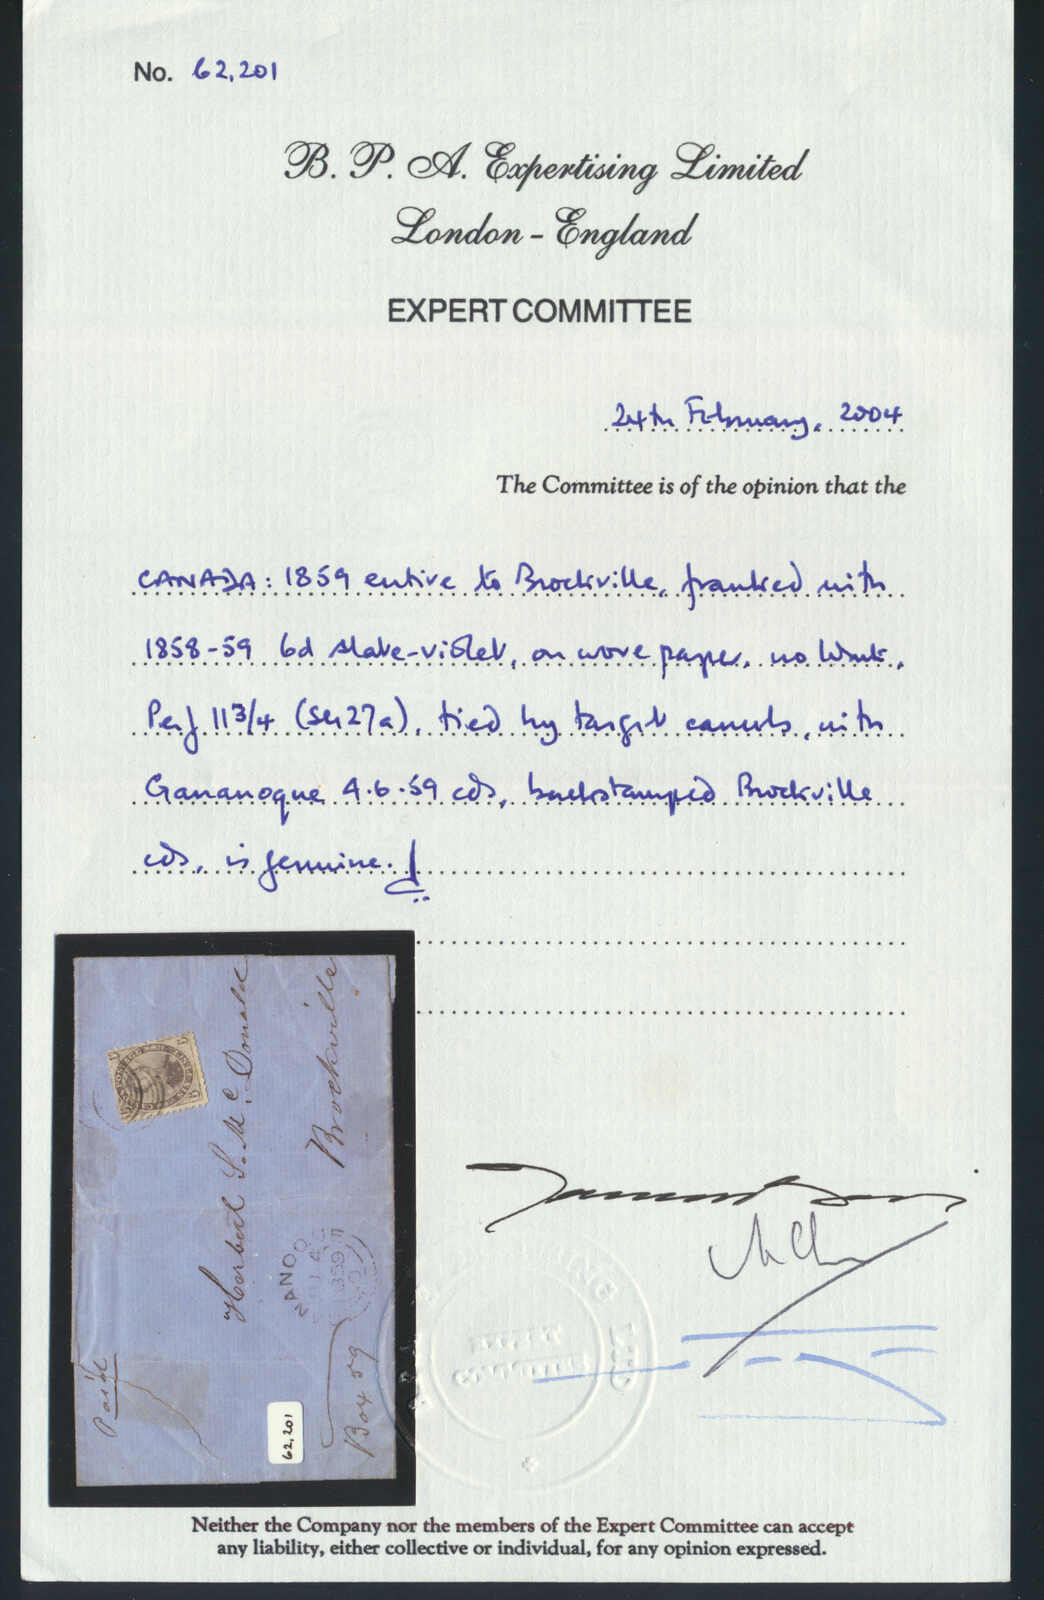 No. 62,201
B. P. A. Expertising Limited
London - England
EXPERT COMMITTEE
24th February, 2004
The Committee is of the opinion that the
CANADA: 1859 entire to Brockville, franked with
1858-59 6d slate-violet, on wove paper, no Wmk,
Perf 11 3/4 (SG 27a), tied by target cancels, with
Gananoque 4.6.59 cds, backstamped Brockville
cds, is genuine.
Herbert S. Mc Donald
Brockville
Box 59
Paid
62,201
Neither the Company nor the members of the Expert Committee can accept
any liability, either collective or individual, for any opinion expressed.